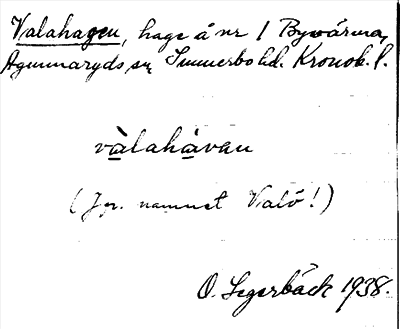 Valahagen, hage å nr 1 Bywärma,
Agunnaryds sn Sunnerbo hd. Kronob. l.
vàlahàvan
(Jfr. namnet Valö!)
O. Segerbäck 1938.